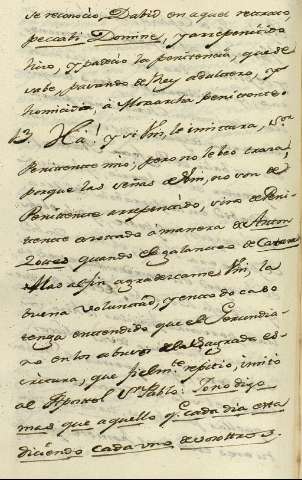 se reconocio, Dabid en aquel retrato,
peccabi Domine, y arrepentido
hizo, y padecio la penitencia, que de-
vebe, pasando de Rey adultero, y
homicida, à Monarcha penitente.
13. Ha! y si Vm, le imitara, Sor
Penitente mio, pero no lo beo traza
porque las señas de Vm, no son de
Penitente arrepentido, sino de Peni-
tente a manera de Anton
quando el galanteo de
Mas al fin agradezcame Vm, la
buena voluntad, y en todo caso
tenga entendido que el Gerundia-
no en los abusos de la Sagrada es-
critura, que fielmte repitio, imitò
al Apostol Sn Pablo: Io no digo
mas que aquello q. cada dia esta
diciendo cada uno de vosotros.